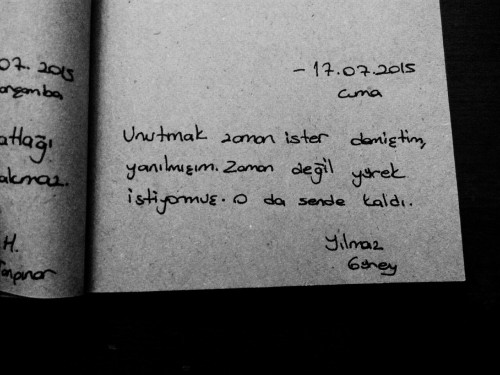 07. 2015
arşamba
atlağı
akmaz.
H.
Tanpınar
- 17.07.2015
cuma
Unutmak zaman ister demiştim,
yanılmışım. Zaman değil yürek
istiyormuş. O da sende kaldı.
Yılmaz
Güney